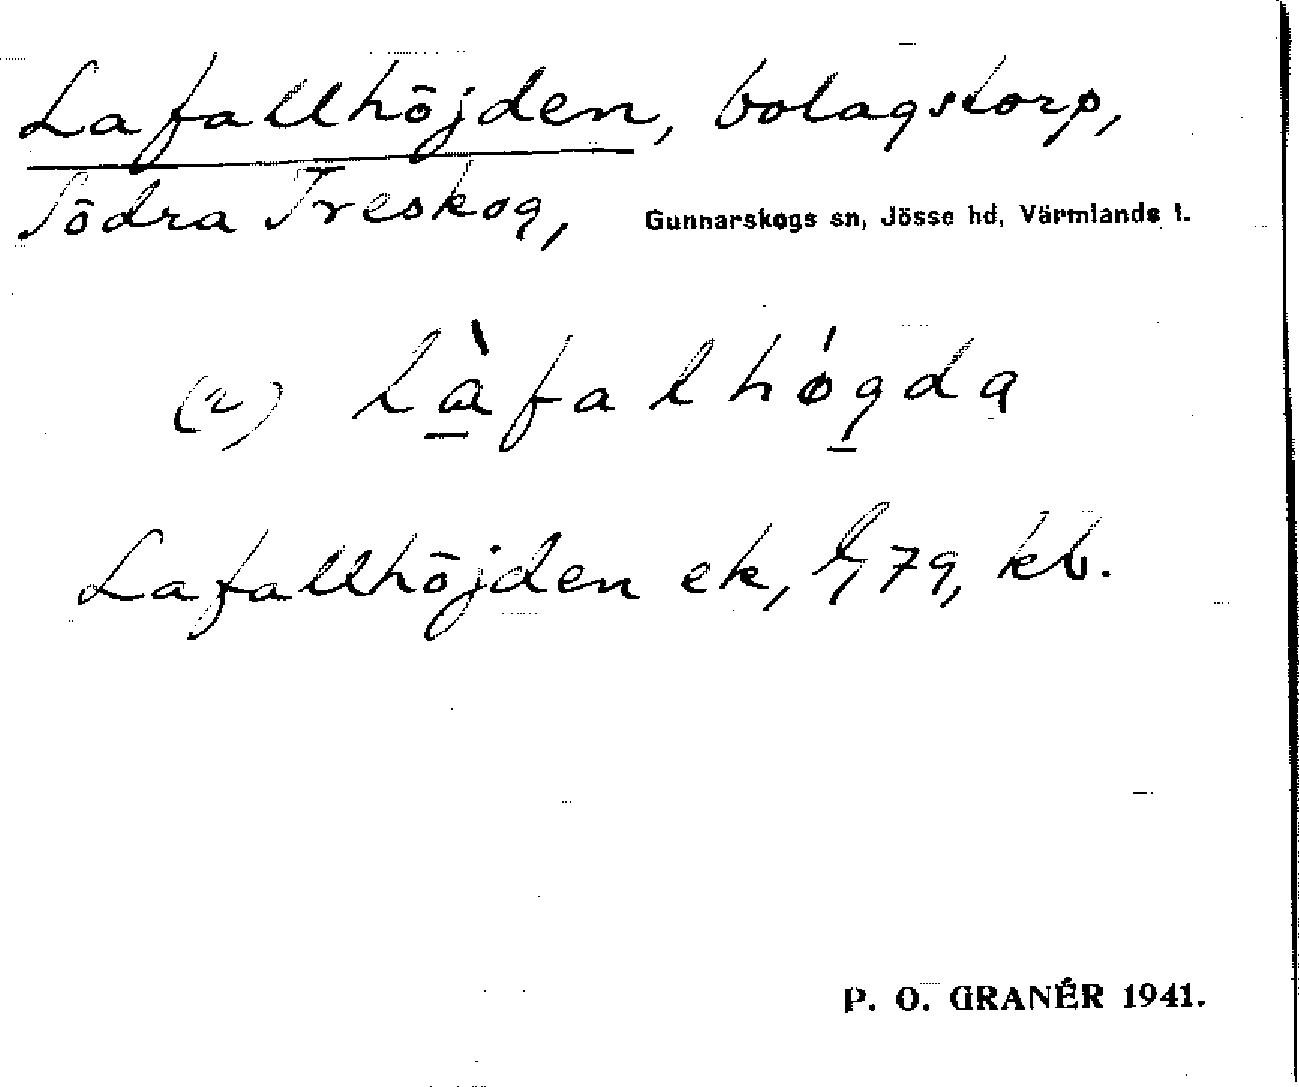 Lafallhöjden, bolagstorp,
Södra Treskog, Gunnarskogs sn, Jösse hd, Värmlands l.
(2) làfalhǿgda
Lafallhöjden ek, 79, kb.
P. O. GRANÉR 1941.